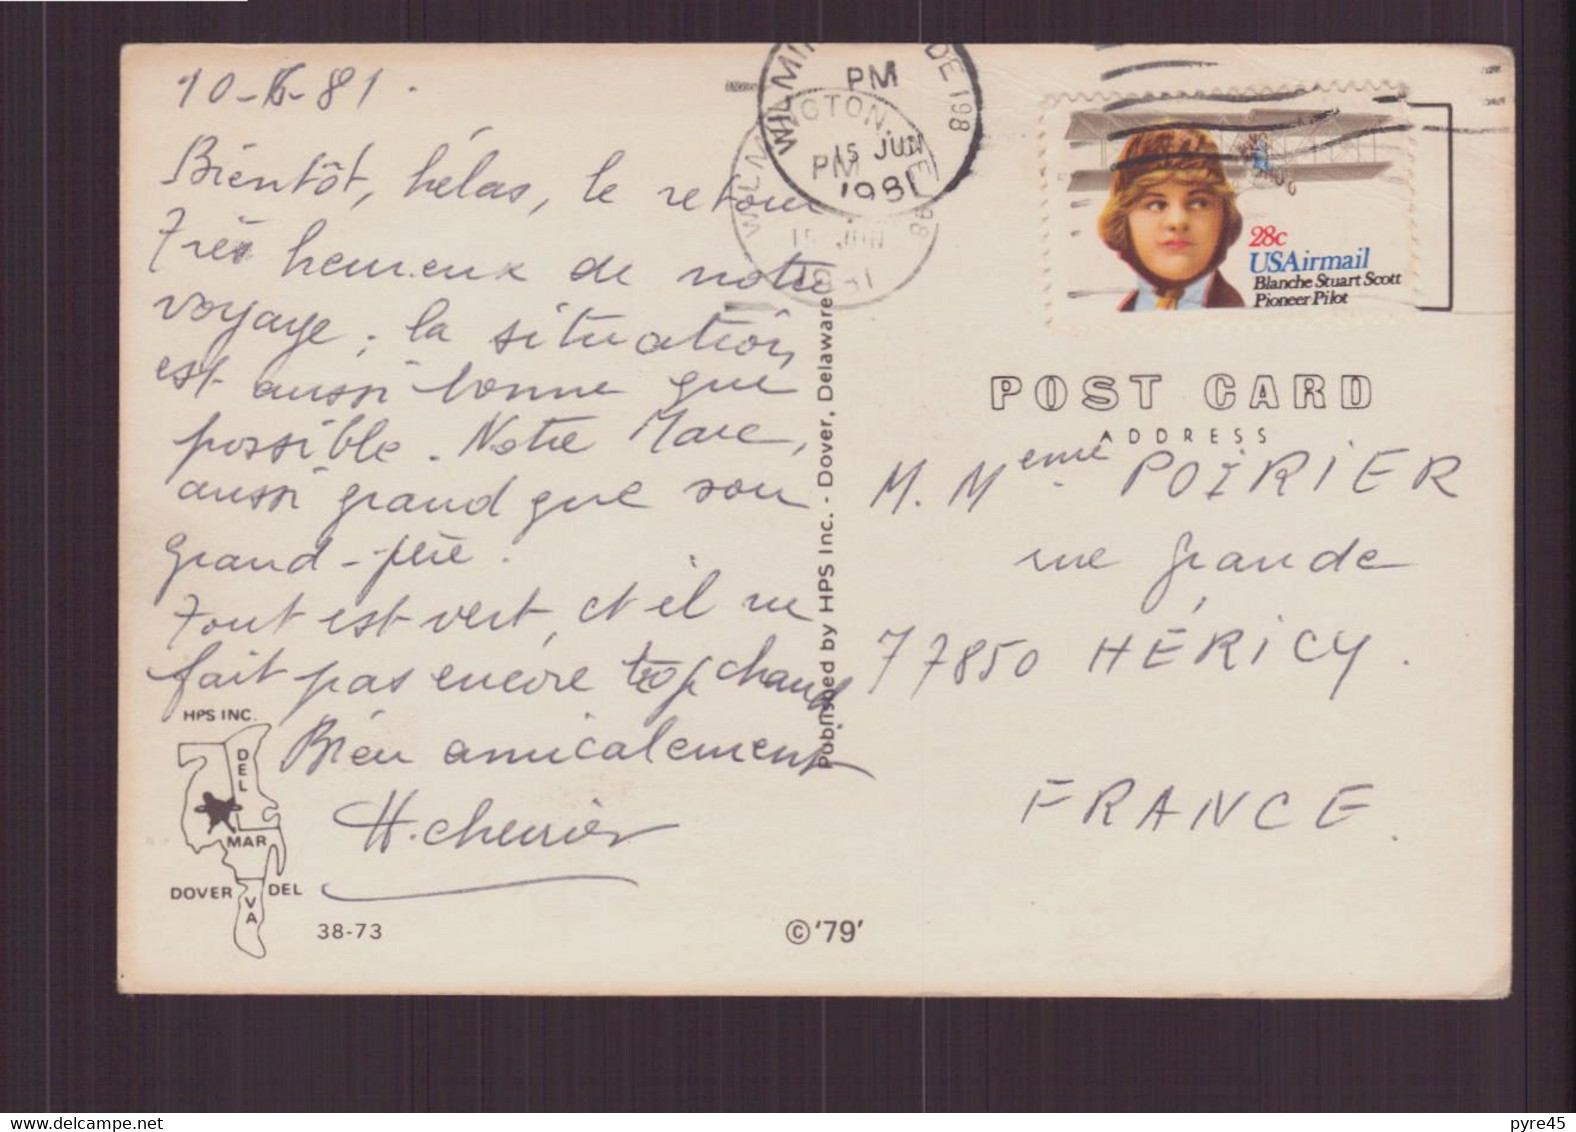 10-6-81.
Bientôt, hélas, le retour
Très heureux de notre
voyage ; la situation
est aussi bonne que
possible. Notre Marc,
aussi grand que son
grand-père.
Tout est vert, et il ne
fait pas encore trop chaud
Bien amicalement
HPS INC.
DEL
MAR
VA
DOVER DEL
38-73
©'79'
Published by HPS Inc. - Dover, Delaware
WILMINGTON, DE 198
PM
15 JUN
1981
WILMINGTON, DE 198
PM
15 JUN
1981
28c
USAirmail
Blanche Stuart Scott
Pioneer Pilot
POST CARD
ADDRESS
M. Meme POIRIER
rue grande
77850 HÉRICY.
FRANCE.
www.delcampe.net
pyre45